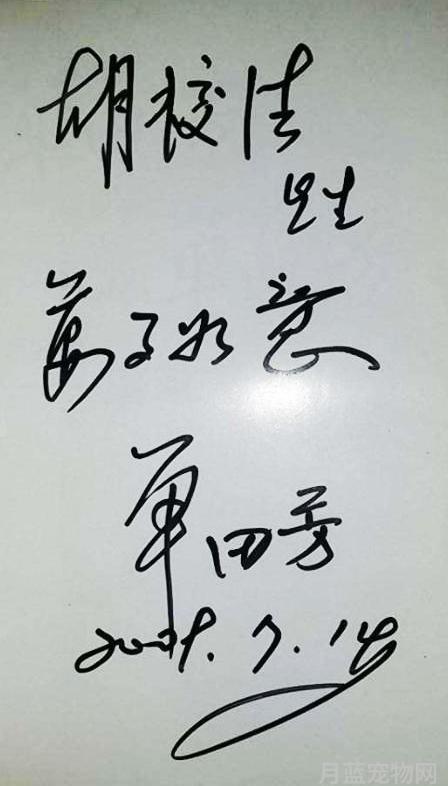 胡校清
先生
萬事如意
单田芳
2005.7.14
月蓝宠物网